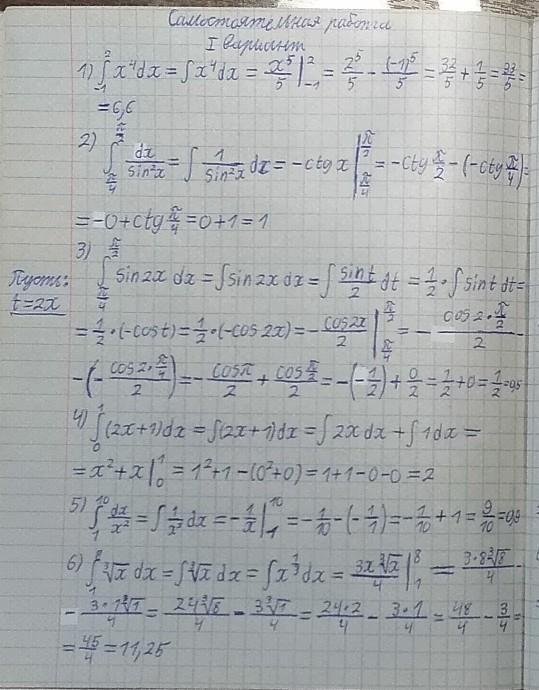 Самостоятельная работа
I вариант
1) ∫₋₁² x⁴dx = ∫x⁴dx = x⁵/5 |₋₁² = 2⁵/5 - (-1)⁵/5 = 32/5 + 1/5 = 33/5 =
= 6,6
2) ∫_{π/4}^{π/2} dx/sin²x = ∫ 1/sin²x dx = -ctg x |_{π/4}^{π/2} = -ctg π/2 - (-ctg π/4) =
= -0 + ctg π/4 = 0 + 1 = 1
3) ∫_{π/4}^{π/2} sin2x dx = ∫sin2x dx = ∫ sint/2 dt = 1/2 · ∫sint dt =
Пусть:
t = 2x
= 1/2 · (-cost) = 1/2 · (-cos2x) = - cos2x/2 |_{π/4}^{π/2} = - (cos2·π/2)/2 -
- (- (cos2·π/4)/2) = - cosπ/2 + (cos π/2)/2 = -(-1/2) + 0/2 = 1/2 + 0 = 1/2 = 0,5
4) ∫₀¹ (2x+1)dx = ∫(2x+1)dx = ∫2x dx + ∫1dx =
= x² + x |₀¹ = 1² + 1 - (0² + 0) = 1 + 1 - 0 - 0 = 2
5) ∫₁¹⁰ dx/x² = ∫ 1/x² dx = - 1/x |₁¹⁰ = - 1/10 - (- 1/1) = - 1/10 + 1 = 9/10 = 0,9
6) ∫₁⁸ ∛x dx = ∫∛x dx = ∫x^{1/3} dx = 3x∛x/4 |₁⁸ = 3·8∛8/4 -
- 3·1∛1/4 = 24∛8/4 - 3∛1/4 = 24·2/4 - 3·1/4 = 48/4 - 3/4 =
= 45/4 = 11,25